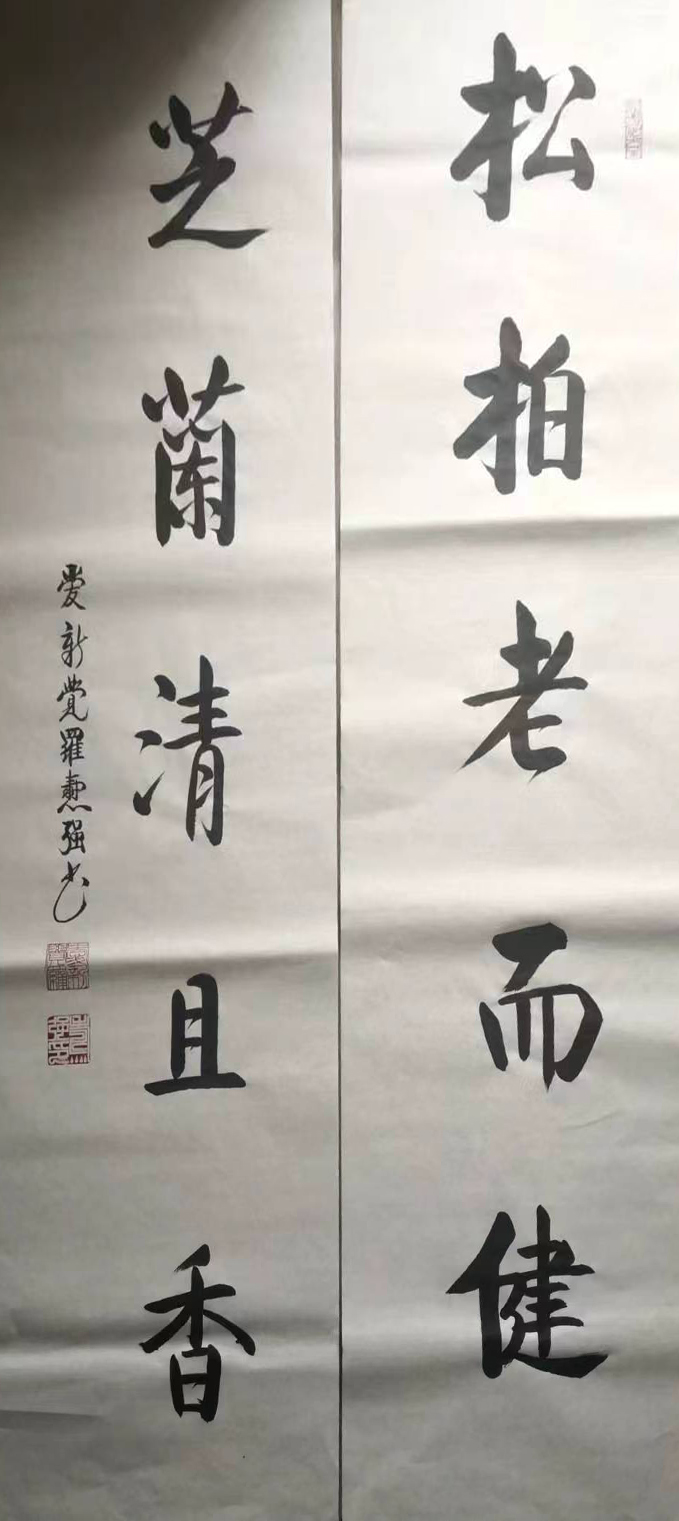 松柏老而健
芝蘭清且香
愛新覺羅㷼强书